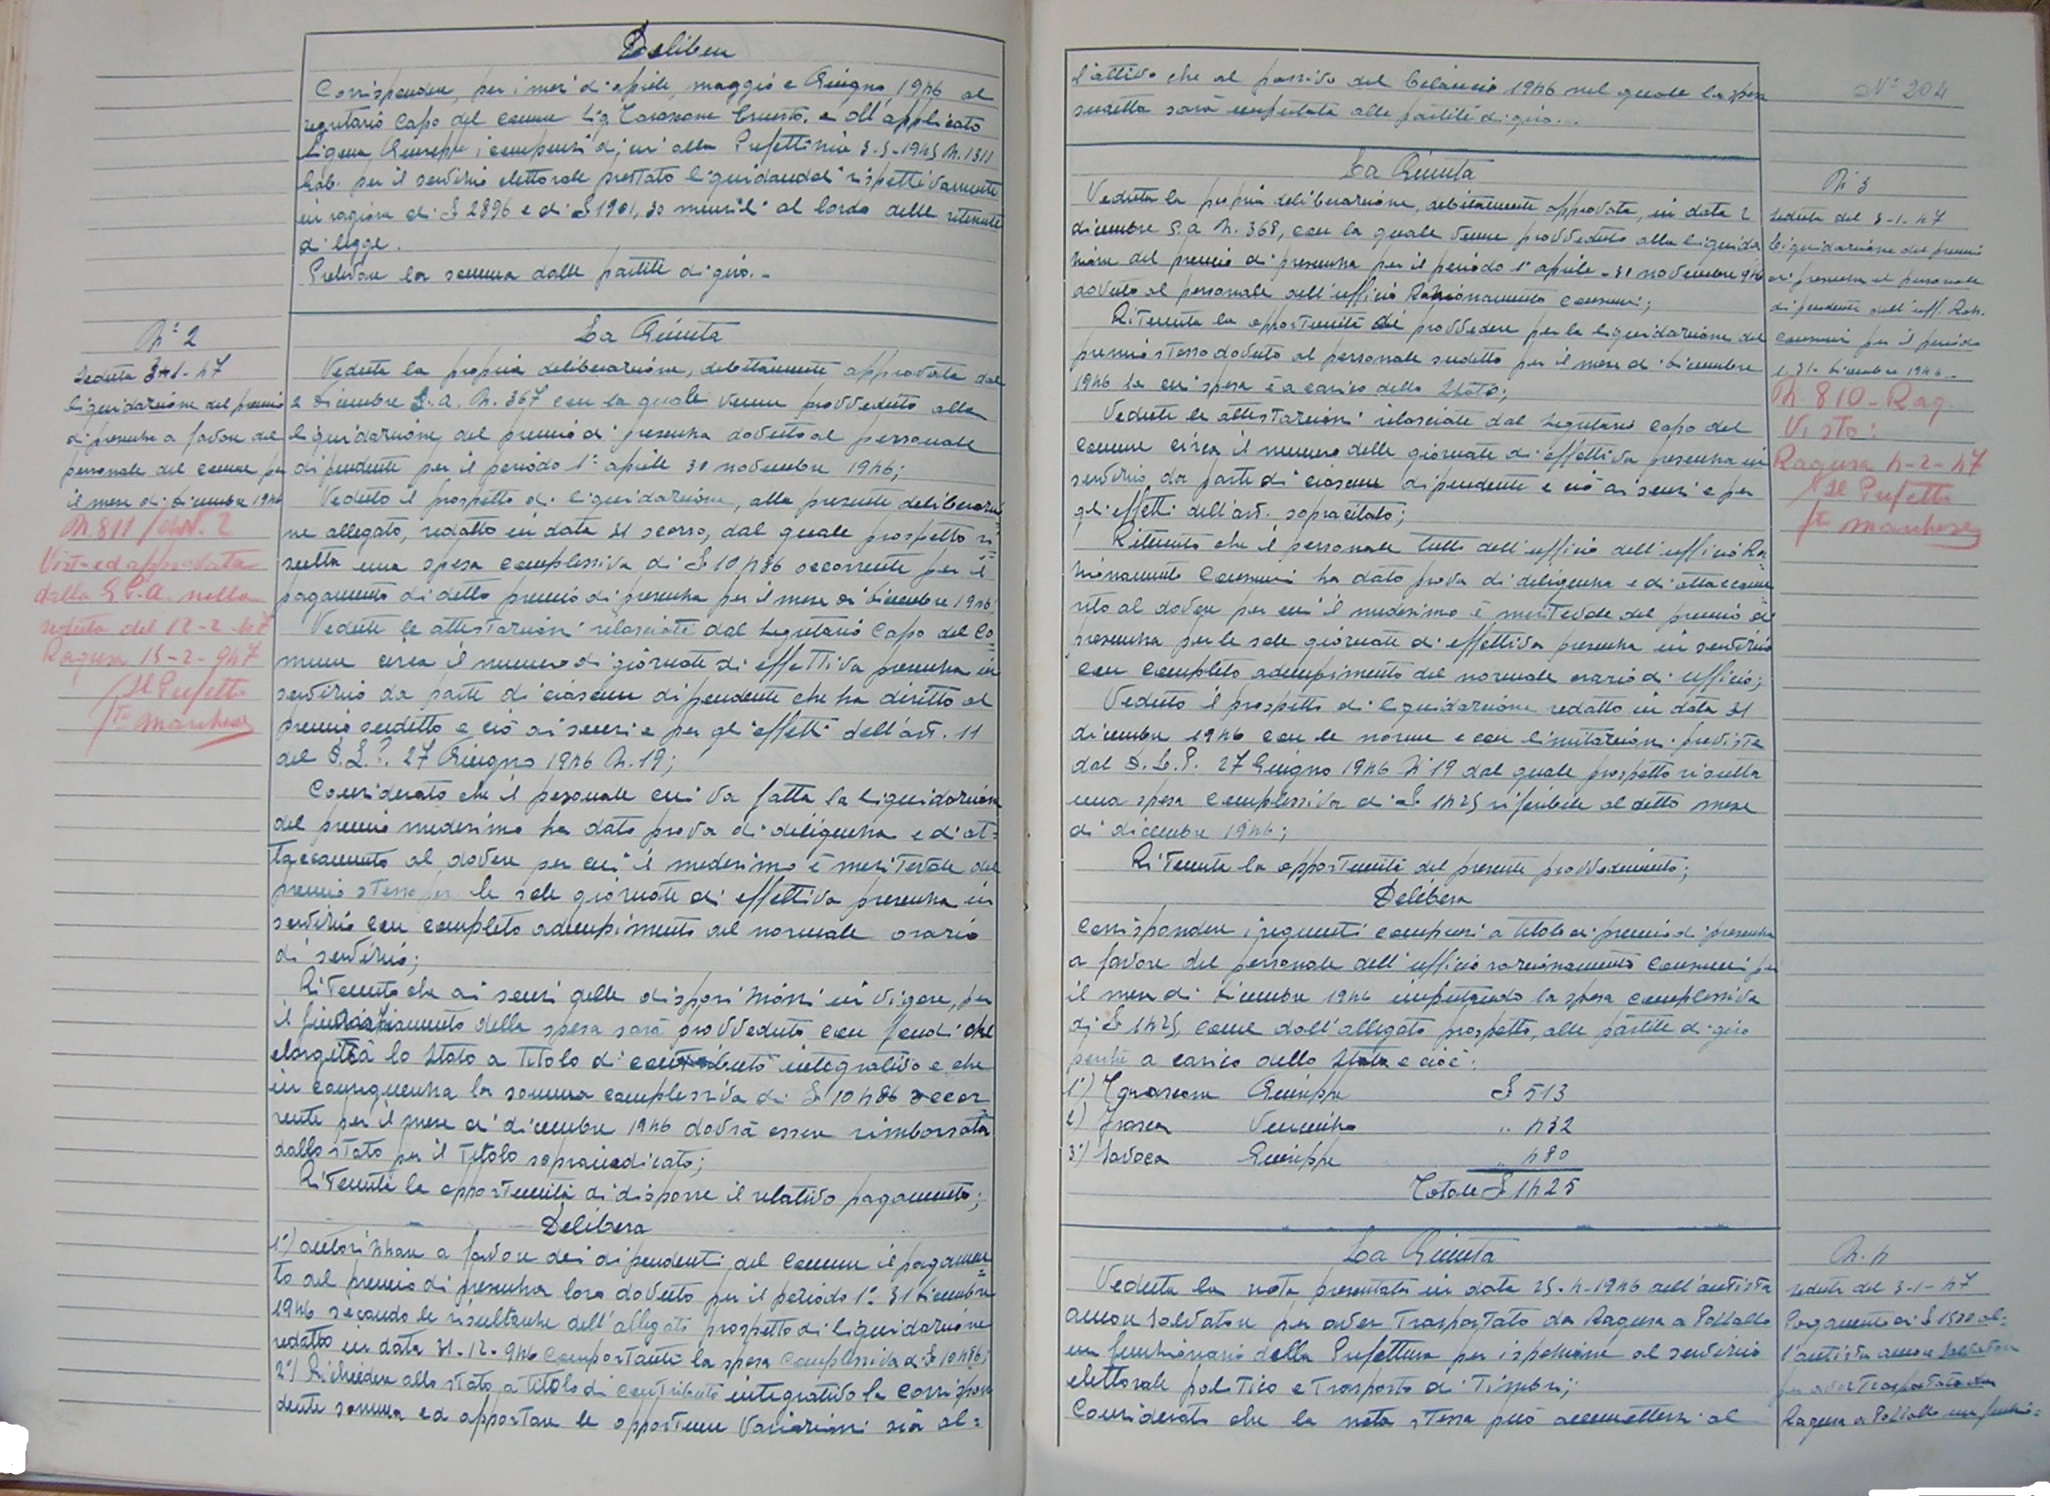 Delibera
Corrispondere, per i mesi di aprile, maggio e Giugno 1946 al
segretario capo del comune Sig. Tarascone Ernesto, e all'applicato
Ligama Giuseppe i compensi di cui alla Prefettizia 3-5-1945 N. 1311
Gab. per il servizio elettorale prestato liquidandoli rispettivamente
in ragione di £ 2896 e di £ 1901,30 mensili al lordo delle ritenute
di legge.
Prelevare la somma dalle partite di giro.-
N° 2
Seduta 3-1-47
liquidazione del premio
di presenza a favore del
personale del comune per
il mese di Dicembre 1946
N. 811/
Vista ed approvata
dalla G.P.A. nella
seduta del 12-2-47
Ragusa 15-2-947
Il Prefetto
fto Marchese
La Giunta
Veduta la propria deliberazione, debitamente approvata del
2 Dicembre S.a. N. 367 con la quale venne provveduto alla
liquidazione del premio di presenza dovuto al personale
dipendente per il periodo 1° aprile 30 novembre 1946;
Veduto il prospetto di liquidazione, alla presente deliberazio
ne allegato, redatto in data 31 scorso, dal quale prospetto ri
sulta una spesa complessiva di £ 10486 occorrente per il
pagamento di detto premio di presenza per il mese di Dicembre 1946;
Vedute le attestazioni rilasciate dal Segretario Capo del Co=
mune circa il numero di giornate di effettiva presenza in
servizio da parte di ciascun dipendente che ha diritto al
premio sudetto e ciò ai sensi e per gli effetti dell'art. 11
del D.L.P. 27 Giugno 1946 N. 19;
Considerato che il pesonale cui va fatta la liquidazione
del premio medesimo ha dato prova di diligenza e di at=
taccamento al dovere per cui il medesimo è meritevole del
premio stesso per le sole giornate di effettiva presenza in
servizio con completo adempimento del normale orario
di servizio;
Ritenuto che ai sensi delle disposizioni in vigore, per
il finanziamento della spesa sarà provveduto con fondi che
elargirà lo Stato a titolo di contributo integrativo e che
in conseguenza la somma complessiva di £ 10486 occor
rente per il mese di dicembre 1946 dovrà essere rimborsata
dallo stato per il titolo sopraindicato;
Ritenuta la opportunità di disporre il relativo pagamento;
Delibera
1°) autorizzare a favore dei dipendenti del Comune il pagamen=
to del premio di presenza loro dovuto per il periodo 1°- 31 Dicembre
1946 secondo le risultanze dell'allegato prospetto di liquidazione
redatto in data 31-12-946 comportante la spesa complessiva di £ 10486;
2°) Richiedere allo stato a titolo di contributo integrativo la corrispon
dente somma ed apportare le opportune variazioni sia al=
l'attivo che al passivo del bilancio 1946 nel quale la spesa
sudetta sarà imputata alle partite di giro.-
N° 204
La Giunta
Veduta la propria deliberazione, debitamente approvata, in data 2
dicembre S.a N. 368, con la quale venne provveduto alla liquida
zione del premio di presenza per il periodo 1° aprile - 30 novembre 946
dovuto al personale dell'ufficio Razionamento Consumi;
Ritenuta la opportunità di provvedere per la liquidazione del
premio stesso dovuto al personale sudetto per il mese di Dicembre
1946 la cui spesa è a carico dello Stato;
Vedute le attestazioni rilasciate dal Segretario Capo del
comune circa il numero delle giornate di effettiva presenza in
servizio da parte di ciascun dipendente e ciò ai sensi e per
gli effetti dell'art. sopracitato;
Ritenuto che il personale tutto dell'ufficio dell'ufficio Ra
zionamento Consumi ha dato prova di diligenza e di attaccame
nto al dovere per cui il medesimo è meritevole del premio di
presenza per le sole giornate di effettiva presenza in servizio
con completo adempimento del normale orario di ufficio;
Veduto il prospetto di liquidazione redatto in data 31
dicembre 1946 con le norme e con limitazioni previste
dal D.L.P. 27 Giugno 1946 N° 19 dal quale prospetto risulta
una spesa complessiva di £ 1425 riferibile al detto mese
di dicembre 1946;
Ritenuta la opportunità del presente provvedimento;
Delibera
Corrispondere i seguenti compensi a titolo di premio di presenza
a favore del personale dell'ufficio razionamento Consumi per
il mese di Dicembre 1946 imputando la spesa complessiva
di £ 1425, come dall'allegato prospetto, alle partite di giro
perché a carico dello Stato e cioè:
1°) Giuseppe £ 513
2°) Frasca Vincenzo " 432
3°) Savoca Giuseppe " 480
Totale £ 1425
N 3
seduta del 3-1-47
liquidazione del premio
di presenza al personale
dipendente dell'uff. Raz.
Consumi per il periodo
1-31 Dicembre 1946.-
N 810-Rag
Visto:
Ragusa 4-2-47
Il Prefetto
fto Marchese
La Giunta
Veduta la nota presentata in data 25-4-1946 dell'autista
Salvatore per aver trasportato da Ragusa a Pozzallo
un funzionario della Prefettura per ispezione al servizio
elettorale politico e trasporto di timbri;
Considerato che la nota stessa può ammettersi al
N. 4
seduta del 3-1-47
Pagamento di £ 1500 al=
l'autista Salvatore
per aver trasportato da
Ragusa a Pozzallo un funzio=